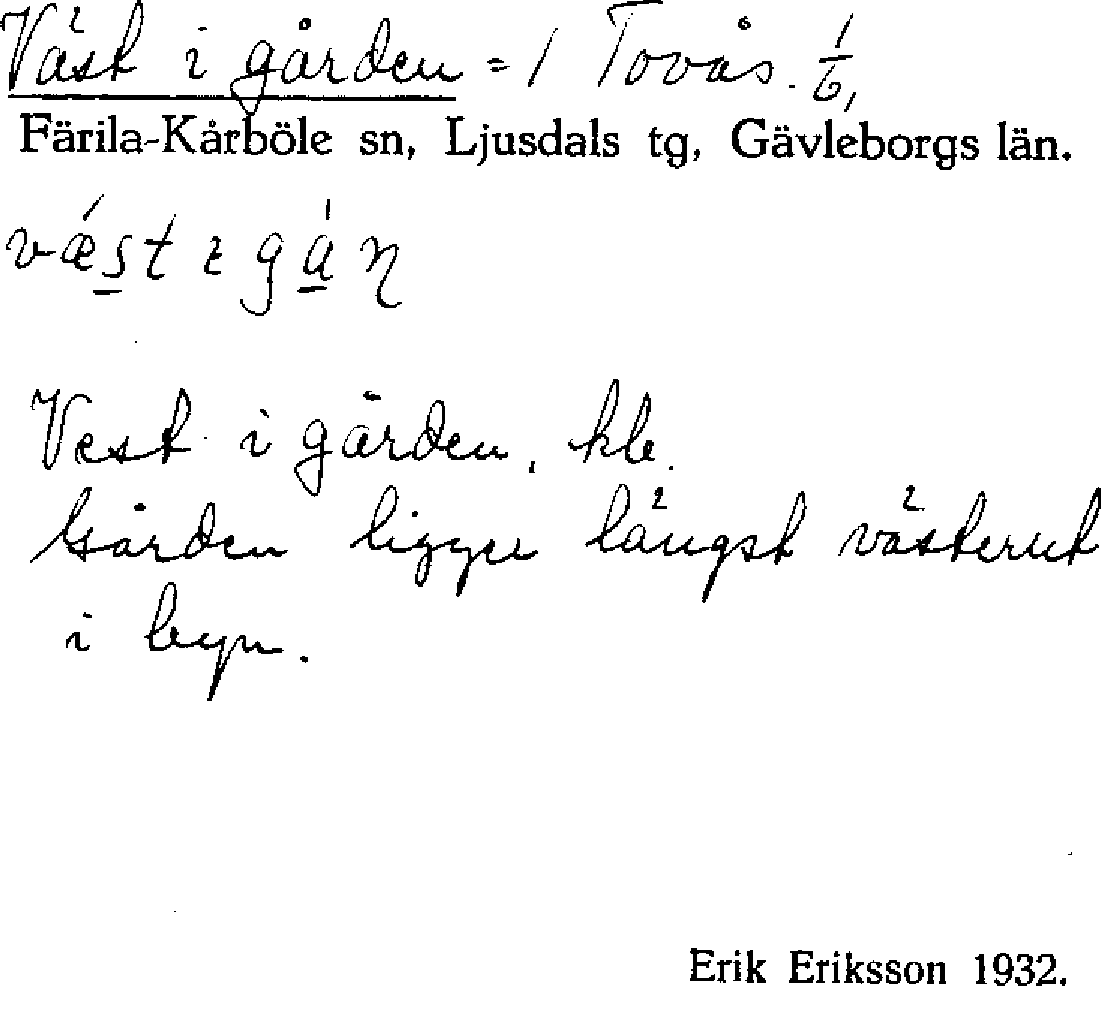 Väst i gården = 1 Tovås. 1/6,
Färila-Kårböle sn, Ljusdals tg, Gävleborgs län.
vǽst ɩ gán
Vest i gården, hb.
Gården ligger längst västerut
i byn.
Erik Eriksson 1932.